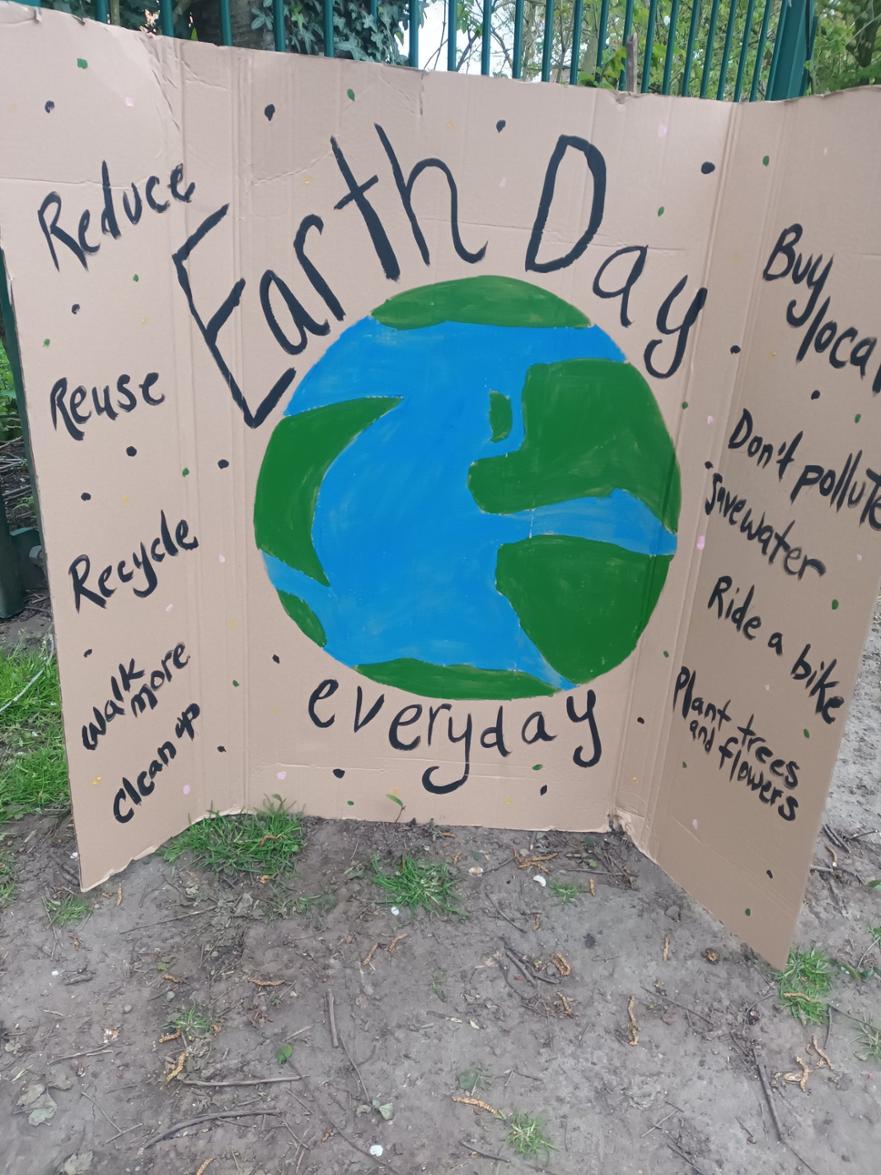 Reduce
Reuse
Recycle
Walk
more
Clean up
Earth Day
everyday
Buy
local
Don't pollute
save water
Ride a bike
Plant trees
and flowers